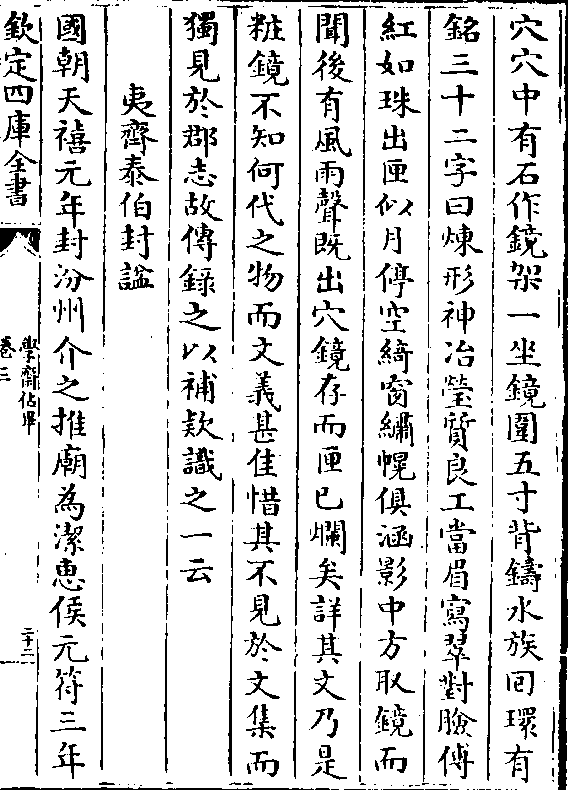 穴穴中有石作鏡架一坐鏡圍五寸背鑄水族囘環有
銘三十二字曰煉形神冶瑩質良工當眉寫翠對臉傅
紅如珠出匣似月停空綺窗繡幌俱涵影中方取鏡而
聞後有風雨聲既出穴鏡存而匣已爛矣詳其文乃是
粧鏡不知何代之物而文義甚佳惜其不見於文集而
獨見於郡志故傳錄之以補款識之一云
夷齊泰伯封諡
國朝天禧元年封汾州介之推廟為潔惠侯元符三年
欽定四庫全書
學齋佔畢
卷三
二十二